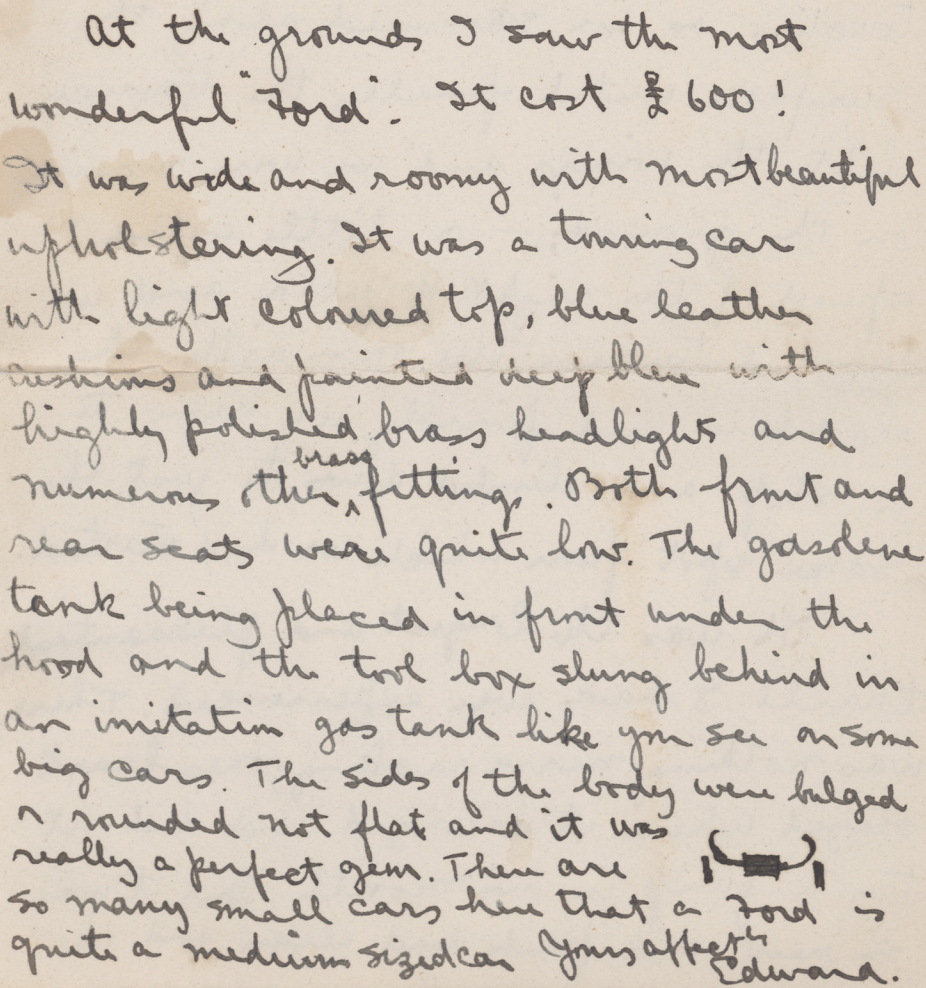 At the grounds I saw the most
wonderful "Ford". It cost £600!
It was wide and roomy with most beautiful
upholstering. It was a touring car
with light coloured top, blue leather
cushions and painted deep blue with
highly polished brass headlights and
numerous other brass fittings. Both front and
rear seats were quite low. The gasolene
tank being placed in front under the
hood and the tool box slung behind in
an imitation gas tank like you see on some
big cars. The sides of the body were bulged
or rounded not flat and it was
really a perfect gem. There are
so many small cars here that a Ford is
quite a medium sized car Yours affectly
Edward.